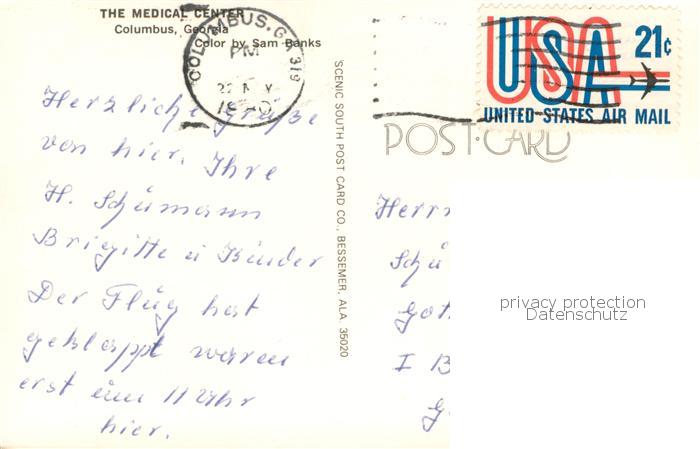 THE MEDICAL CENTER
Columbus, Georgia
Color by Sam Banks
COLUMBUS, GA 319
PM
22
Herzliche Grüße
von hier. Ihre
H. Schümann
Brigitte u Kinder
Der Flug hat
geklappt waren
erst um 11 Uhr
hier.
SCENIC SOUTH POST CARD CO., BESSEMER, ALA. 35020
USA 21c
UNITED STATES AIR MAIL
POST CARD
Herrn
Schü
Got
I B
G
privacy protection
Datenschutz